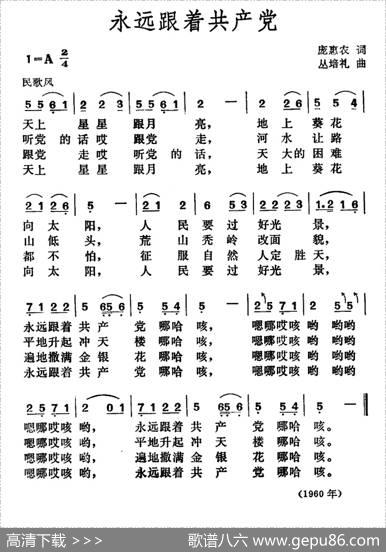 永远跟着共产党
1=A 2/4
庞惠农 词
丛培礼 曲
民歌风
5 5 6 1 | 2 2 3 | 5 5 2 1 | 2 — | 2 2 6 1 | 2 2 3
天上 星星 跟月 亮, 地上 葵花
听党 的话 哎 跟党 走, 河水 让路
跟党 走哎 听党 的话, 天大 的困难
天上 星星 跟月 亮, 地上 葵花
向太 阳, 人民 要过 好光 景,
山低 头, 荒山 秃岭 改面 貌,
都不 怕, 征服 自然 人定 胜天,
向太 阳, 人民 要过 好光 景,
永远跟着 共产 党 哪哈 咳, 嗯哪哎咳 哟 哟哟
平地升起 冲天 楼 哪哈 咳, 嗯哪哎咳 哟 哟哟
遍地撒满 金银 花 哪哈 咳, 嗯哪哎咳 哟 哟哟
永远跟着 共产 党 哪哈 咳, 嗯哪哎咳 哟 哟哟
嗯哪哎咳 哟, 永远跟着 共产 党 哪哈 咳。
嗯哪哎咳 哟, 平地升起 冲天 楼 哪哈 咳。
嗯哪哎咳 哟, 遍地撒满 金银 花 哪哈 咳。
嗯哪哎咳 哟, 永远跟着 共产 党 哪哈 咳。
(1960 年)
高清下载 >>> 歌谱八六 www.gepu86.com